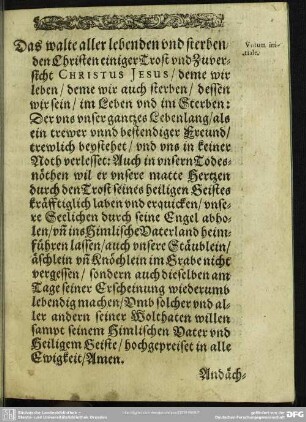 Das walte aller lebenden vnd sterben-
den Christen einiger Trost vnd Zuver-
sicht CHRISTUS JESUS / deme wir
leben / deme wir auch sterben / dessen
wir sein / im Leben vnd im Sterben:
Der vns vnser gantzes Lebenlang / als
ein trewer vnnd bestendiger Freund /
trewlich beystehet / vnd vns in keiner
Noth verlesset: Auch in vnsern Todes-
nöthen wil er vnsere matte Hertzen
durch den Trost seines heiligen Geistes
kräfftiglich laben vnd erquicken / vnse-
re Seelichen durch seine Engel abho-
len / vn̄ ins Himlische Vaterland heim-
führen lassen / auch vnsere Stäublein /
äschlein vn̄ Knöchlein im Grabe nicht
vergessen / sondern auch dieselben am
Tage seiner Erscheinung wiederumb
lebendig machen / Vmb solcher vnd al-
ler andern seiner Wolthaten willen
sampt seinem Himlischen Vater vnd
Heiligem Geiste / hochgepreiset in alle
Ewigkeit / Amen.
Andäch-
Votum ini-
tiale.
DFG